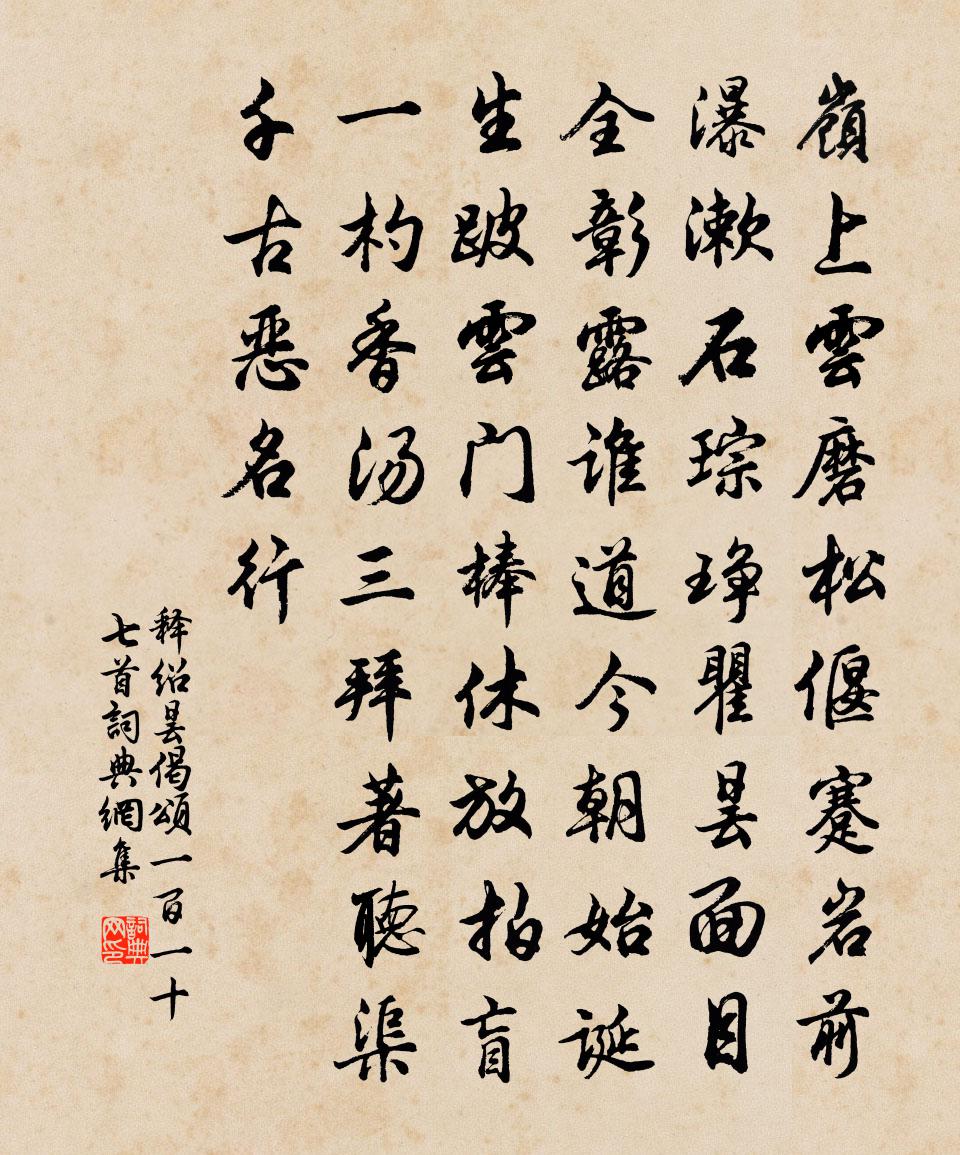 嶺上雲磨松偃蹇岩前
瀑漱石琮琤瞿昙面目
全彰露谁道今朝始誕
生跛雲门棒休放拍盲
一杓香汤三拜著聽渠
千古恶名行
释绍昙偈頌一百一十
七首詞典網集
詞典网印